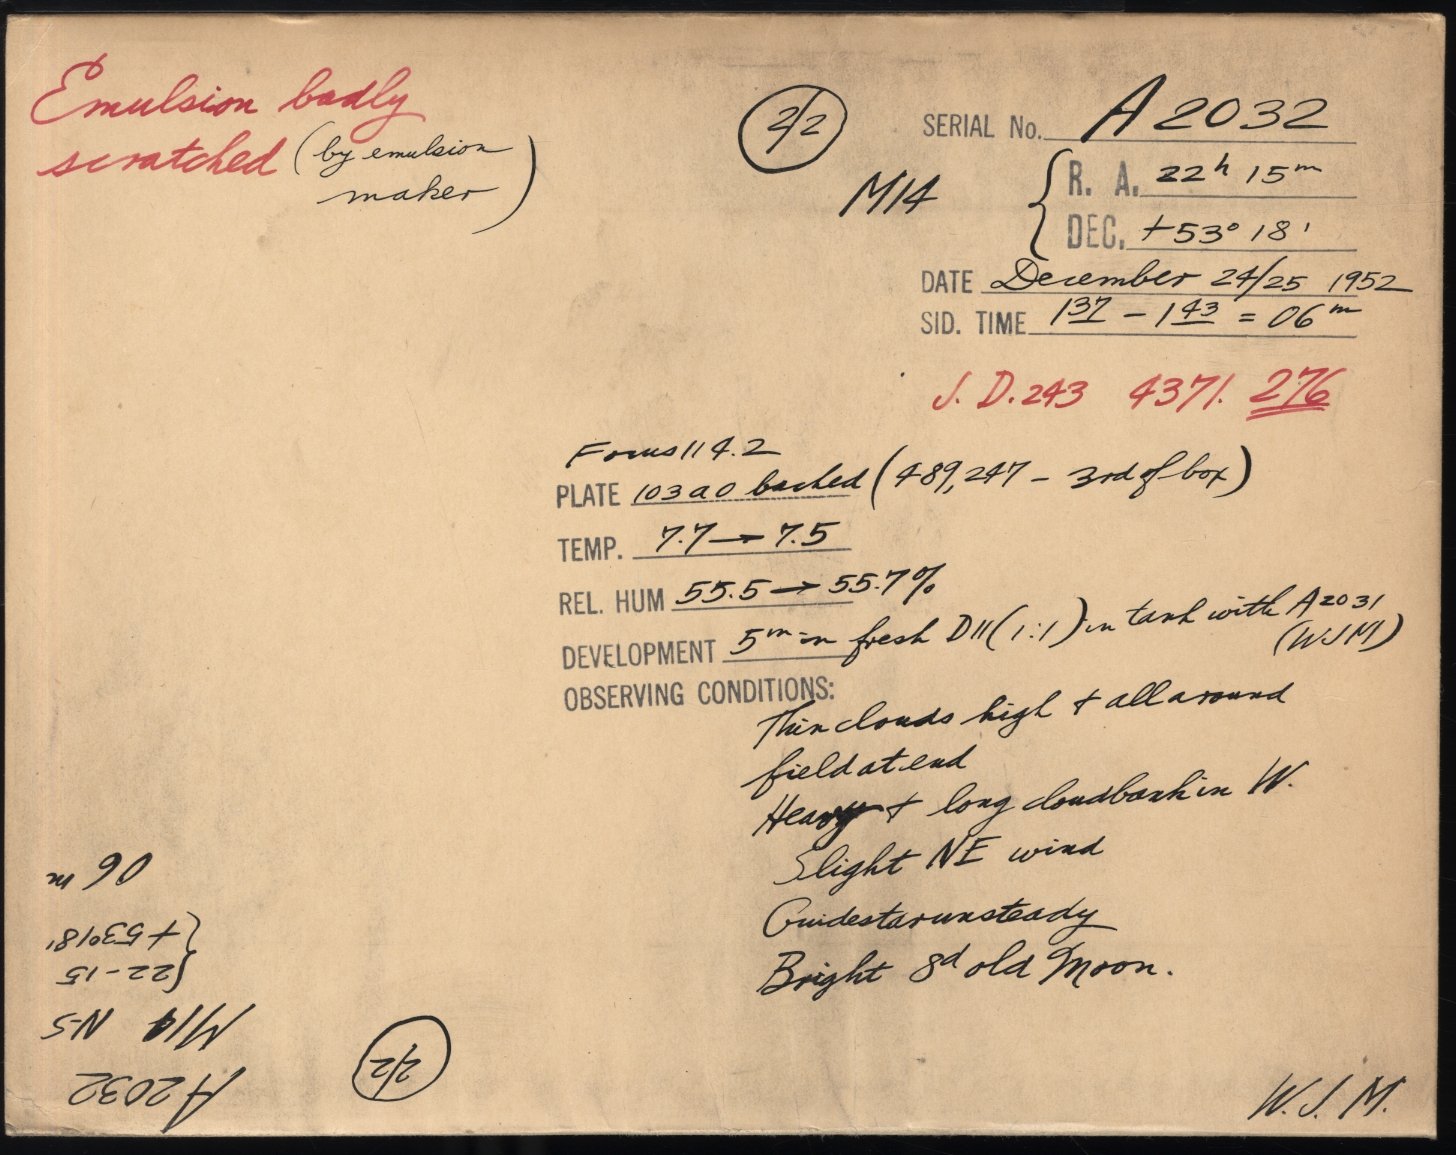 Emulsion badly
scratched (by emulsion
maker)
2/2
SERIAL No. A 2032
M14
R. A. 22h 15m
DEC. +53° 18'
DATE December 24/25 1952
SID. TIME 1 37 - 1 43 = 06m
J. D. 243 4371. 276
Focus 114.2
PLATE 103aO backed (489,247 - 3rd of box)
TEMP. 7.7 → 7.5
REL. HUM 55.5 → 55.7%
DEVELOPMENT 5m in fresh D11 (1:1) in tank with A2031
(WJM)
OBSERVING CONDITIONS:
Thin clouds high & all around
field at end
Heavy & long cloudbank in W.
Slight NE wind
Guidestar unsteady
Bright 8d old Moon.
W. J. M.
A2032
2/2
M14 N-S
{22-15
+53°18'
06 m